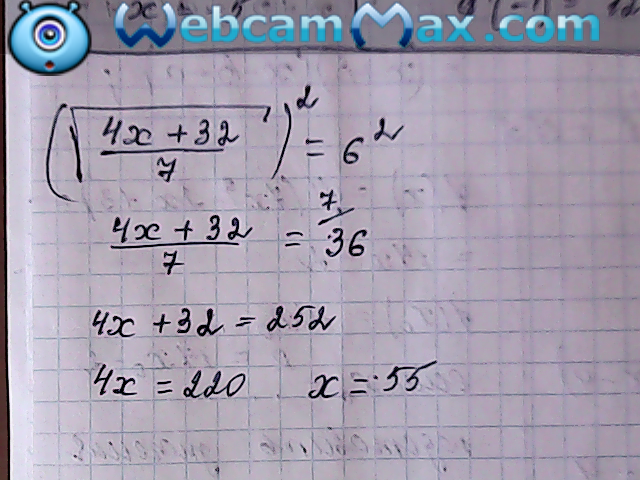 WebcamMax.com
(√(4x + 32)/7)² = 6²
(4x + 32)/7 = 36 7
4x + 32 = 252
4x = 220 x = 55